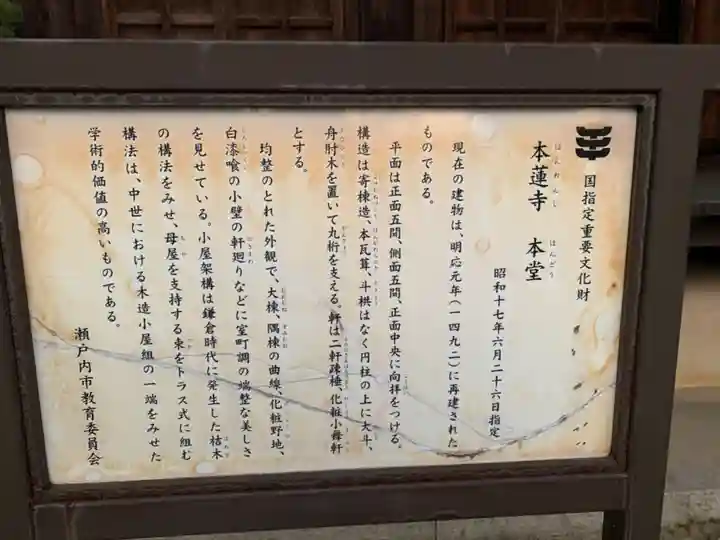 国指定重要文化財
本蓮寺 本堂
昭和十七年六月二十六日指定
現在の建物は、明応元年(一四九二)に再建された
ものである。
平面は正面五間、側面五間、正面中央に向拝をつける。
構造は寄棟造、本瓦葺、斗栱はなく円柱の上に大斗、
舟肘木を置いて丸桁を支える。軒は二軒疎棰、化粧小舞軒
とする。
均整のとれた外観で、大棟、隅棟の曲線、化粧野地、
白漆喰の小壁の軒廻りなどに室町調の端整な美しさ
を見せている。小屋架構は鎌倉時代に発生した枯木
の構法をみせ、母屋を支持する束をトラス式に組む
構法は、中世における木造小屋組の一端をみせた
学術的価値の高いものである。
瀬戸内市教育委員会